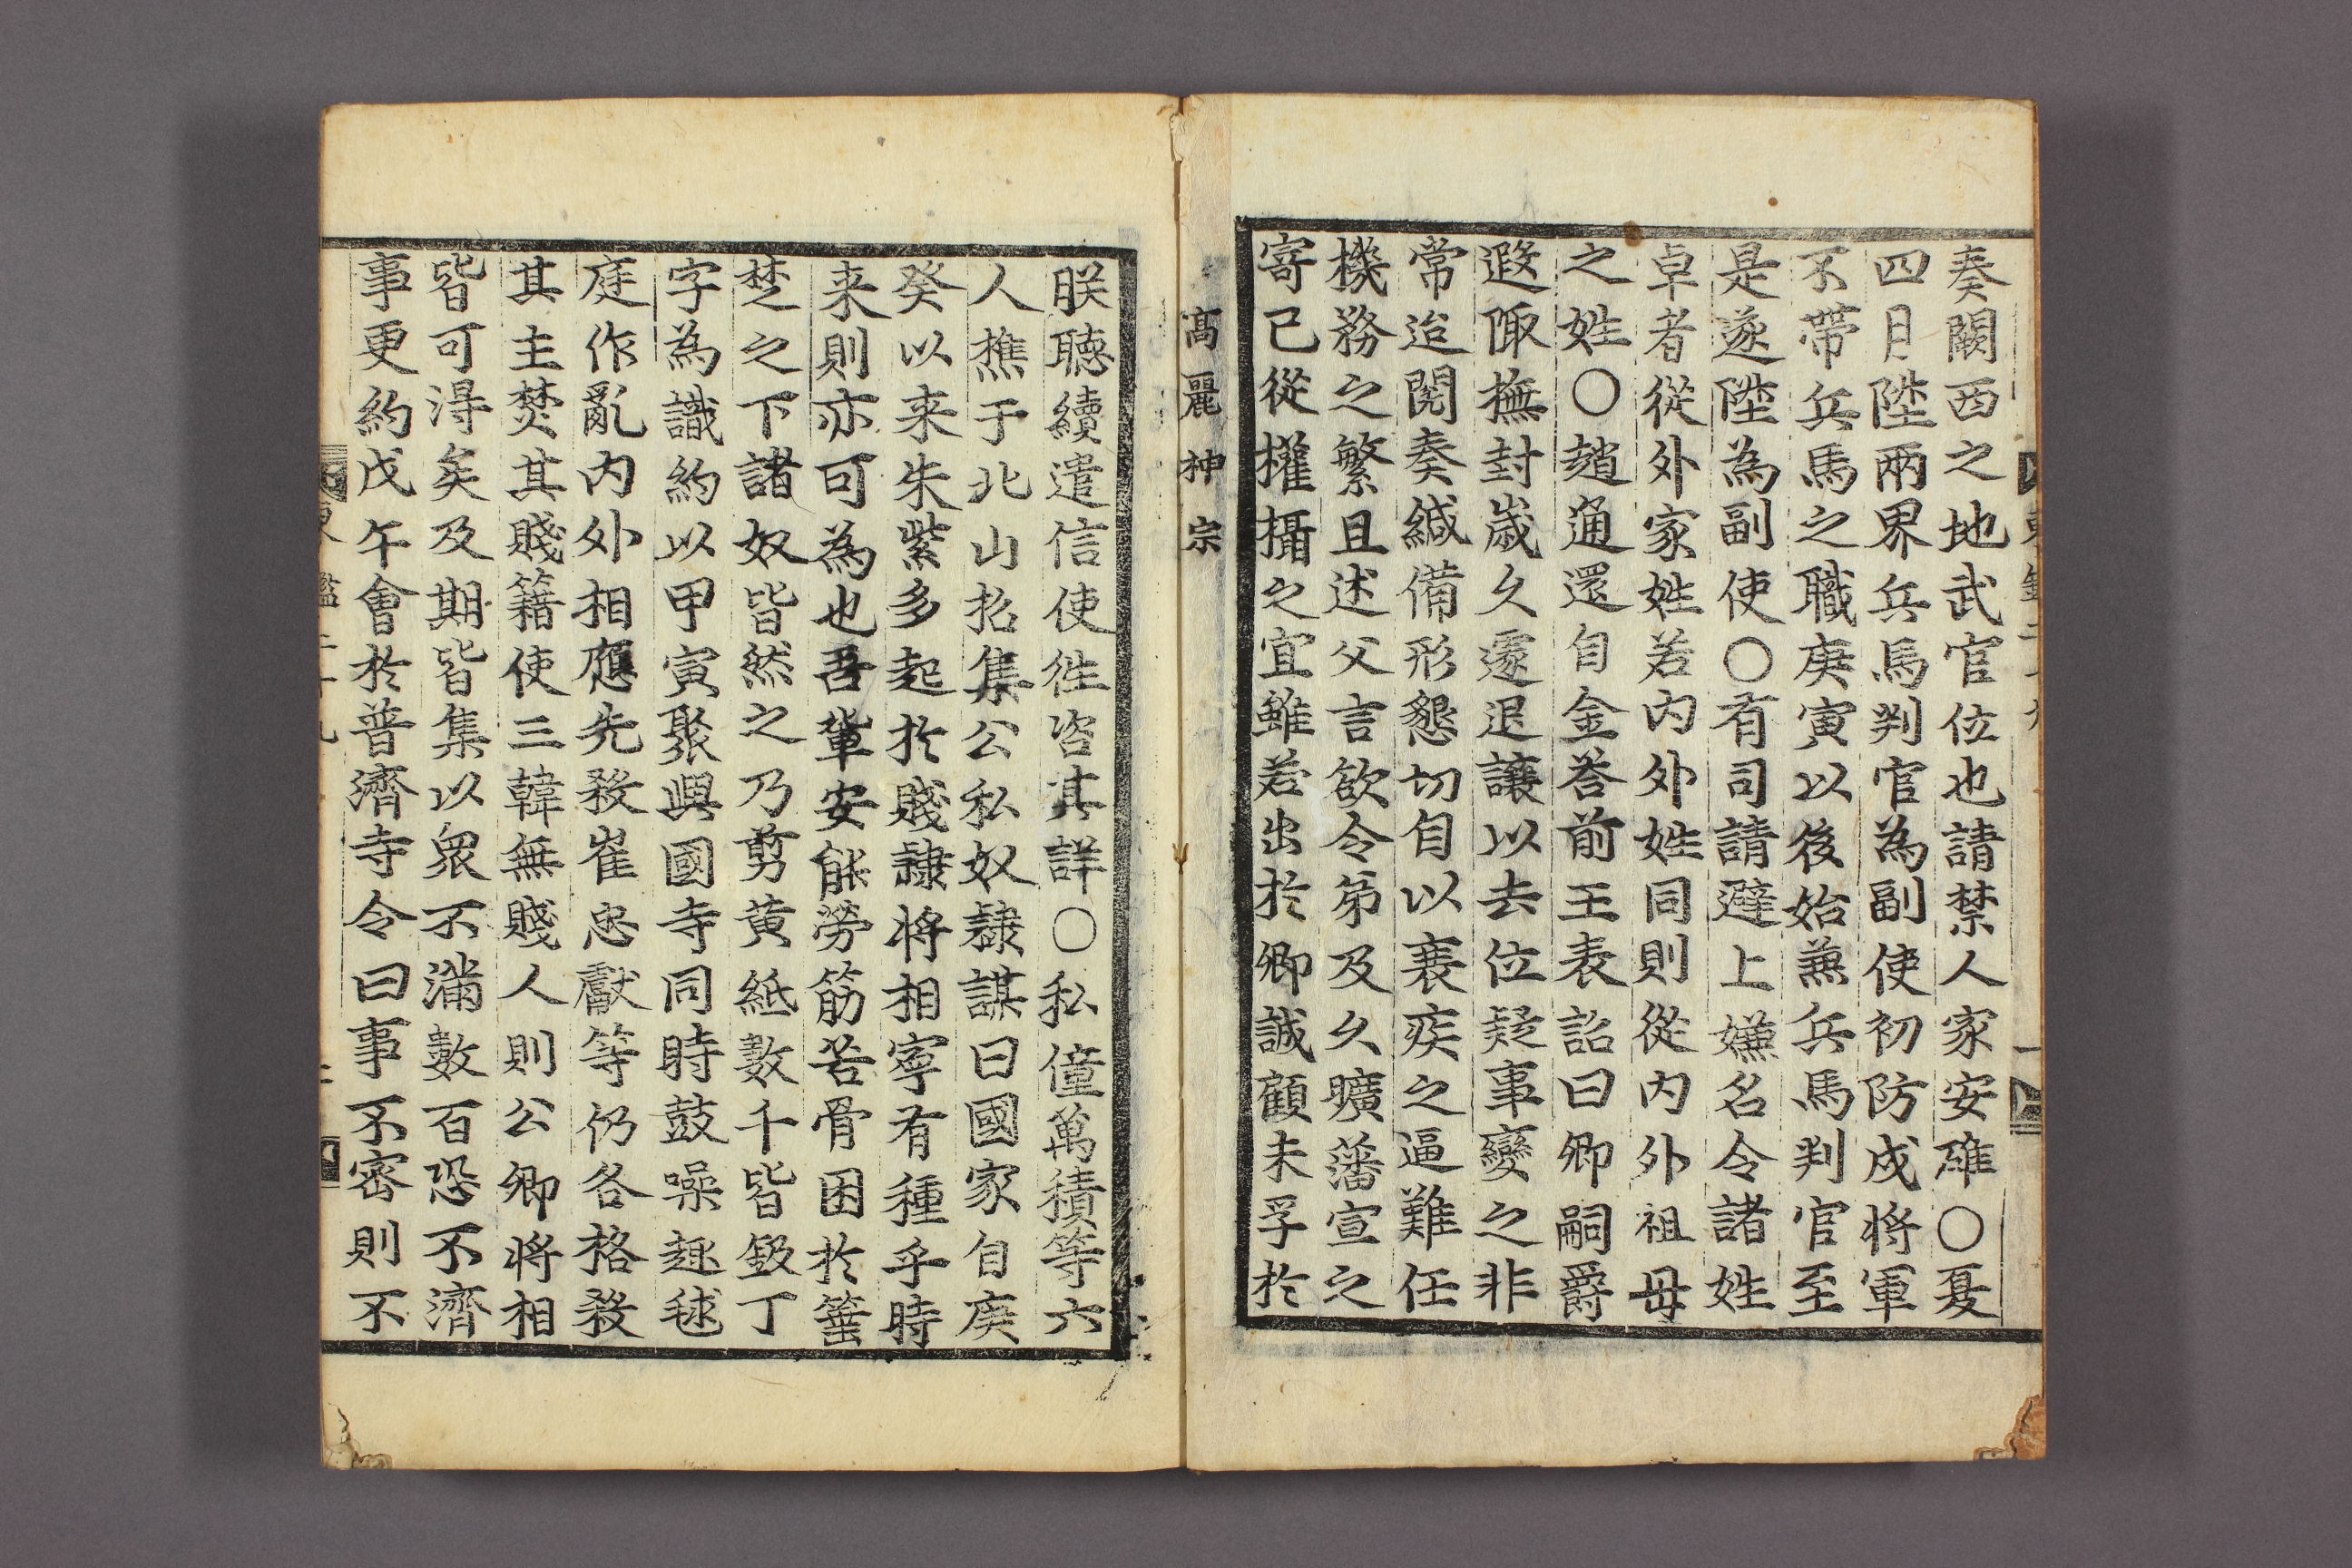 奏闕西之地武官位也請禁人家安碓○夏
四月陞兩界兵馬判官為副使初防戍将軍
不帶兵馬之職庚寅以後始兼兵馬判官至
是遂陞為副使○有司請避上嫌名令諸姓
卓者從外家姓若内外姓同則從内外祖母
之姓○趙通還自金答前王表詔曰卿嗣爵
遐陬撫封嵗久遽退讓以去位疑事變之非
常迨閱奏緘備形懇切自以衰疾之逼難任
機務之繁且述父言欲令弟及乆曠藩宣之
寄已從權攝之宜雖若出於卿誠顧未孚於
高麗神宗
朕聽續遣信使徃咨其詳○私僮萬積等六
人樵于北山招集公私奴隷謀曰國家自庚
癸以来朱紫多起於賤隷将相寧有種乎時
来則亦可為也吾輩安能勞筋苦骨困於箠
楚之下諸奴皆然之乃剪黄紙數千皆鈒丁
字為識約以甲寅聚興國寺同時鼓噪趍毬
庭作亂内外相應先殺崔忠獻等仍各格殺
其主焚其賤籍使三韓無賤人則公卿将相
皆可得矣及期皆集以衆不滿數百恐不濟
事更約戊午會於普濟寺令曰事不密則不